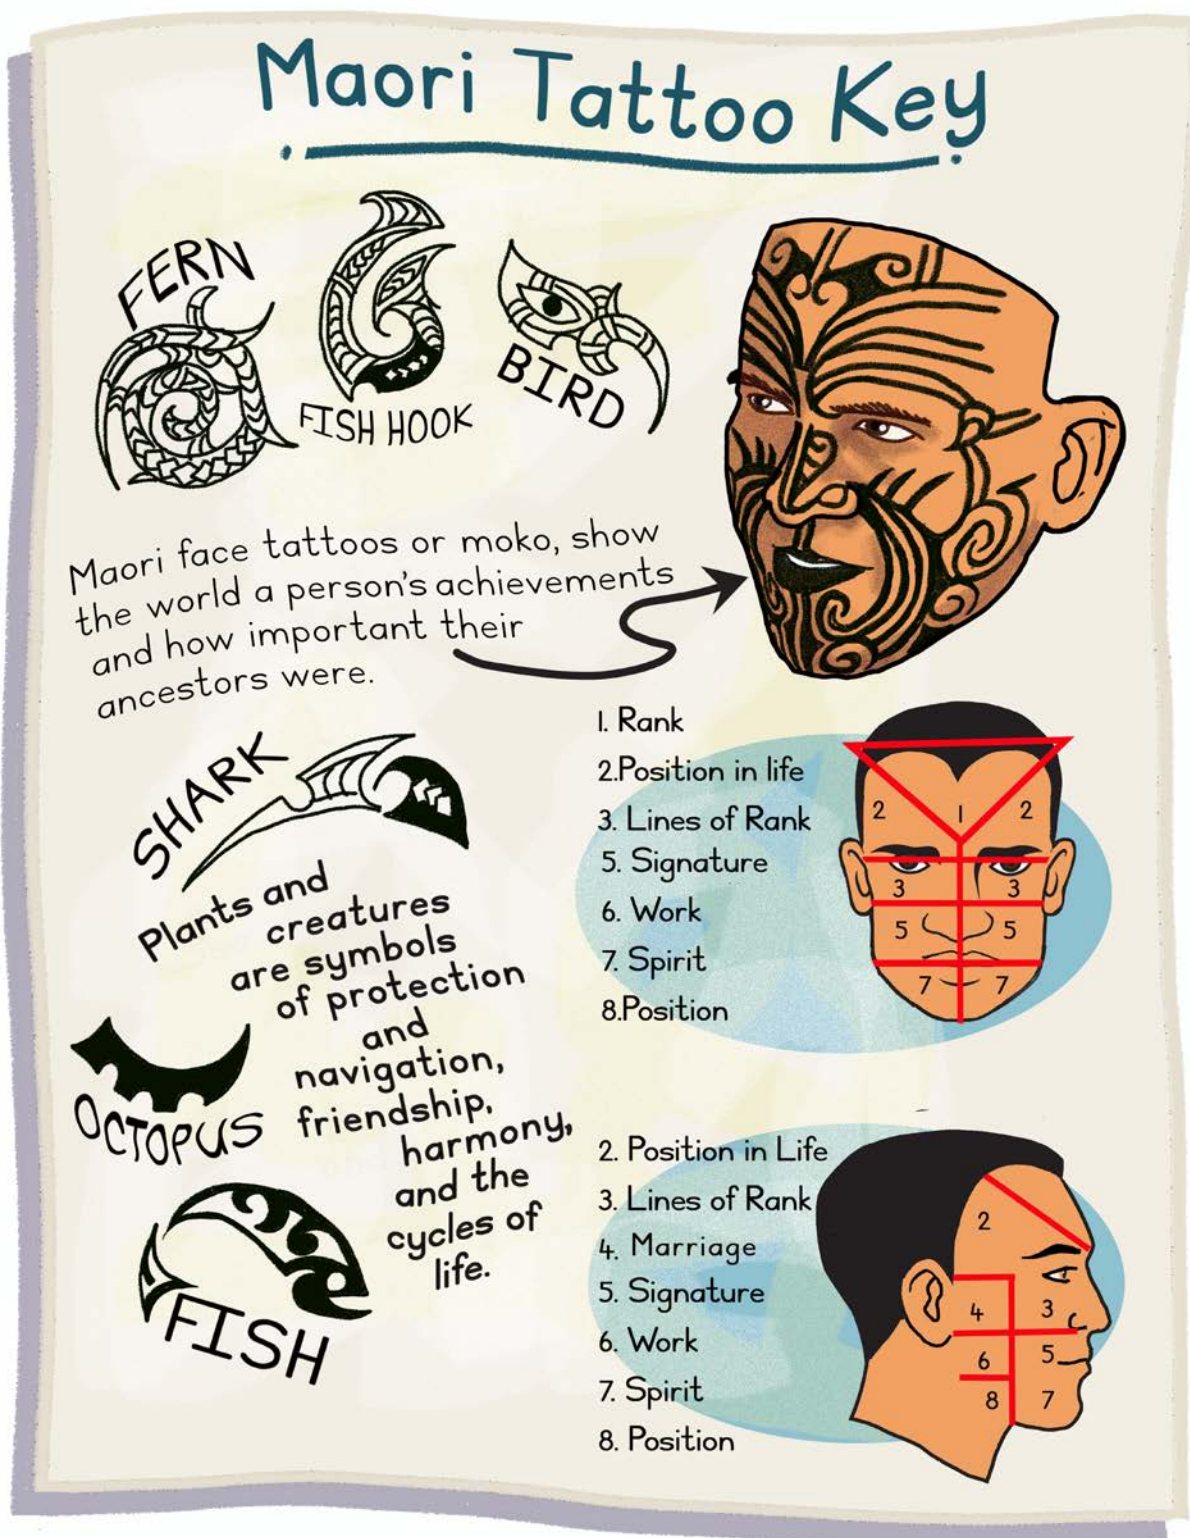 Maori Tattoo Key
FERN
FISH HOOK
BIRD
Maori face tattoos or moko, show
the world a person's achievements
and how important their
ancestors were.
SHARK
Plants and
creatures
are symbols
of protection
and
navigation,
friendship,
harmony,
and the
cycles of
life.
OCTOPUS
FISH
1. Rank
2.Position in life
3. Lines of Rank
5. Signature
6. Work
7. Spirit
8.Position
2 1 2
3 3
5 5
7 7
2. Position in Life
3. Lines of Rank
4. Marriage
5. Signature
6. Work
7. Spirit
8. Position
2
4 3
6 5
8 7